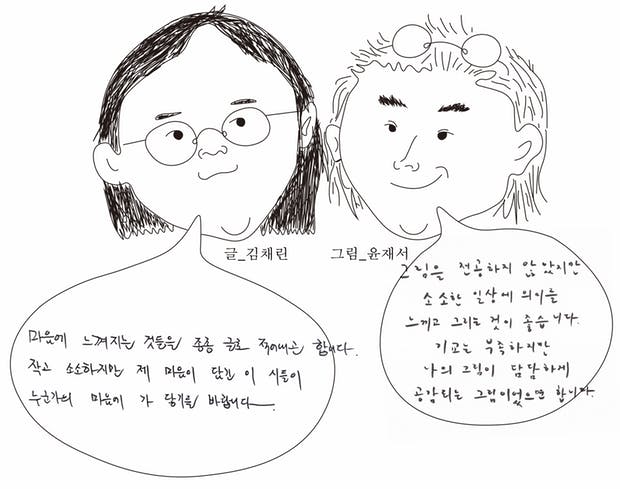 글_김채린
그림_윤재서
마음에 느껴지는 것들을 종종 글로 적어내곤 합니다.
작고 소소하지만 제 마음이 담긴 이 시들이
누군가의 마음에 가 닿기를 바랍니다.
그림을 전공하지 않았지만
소소한 일상에 의미를
느끼고 그리는 것이 좋습니다.
기교는 부족하지만
나의 그림이 담담하게
공감되는 그림이었으면 합니다.